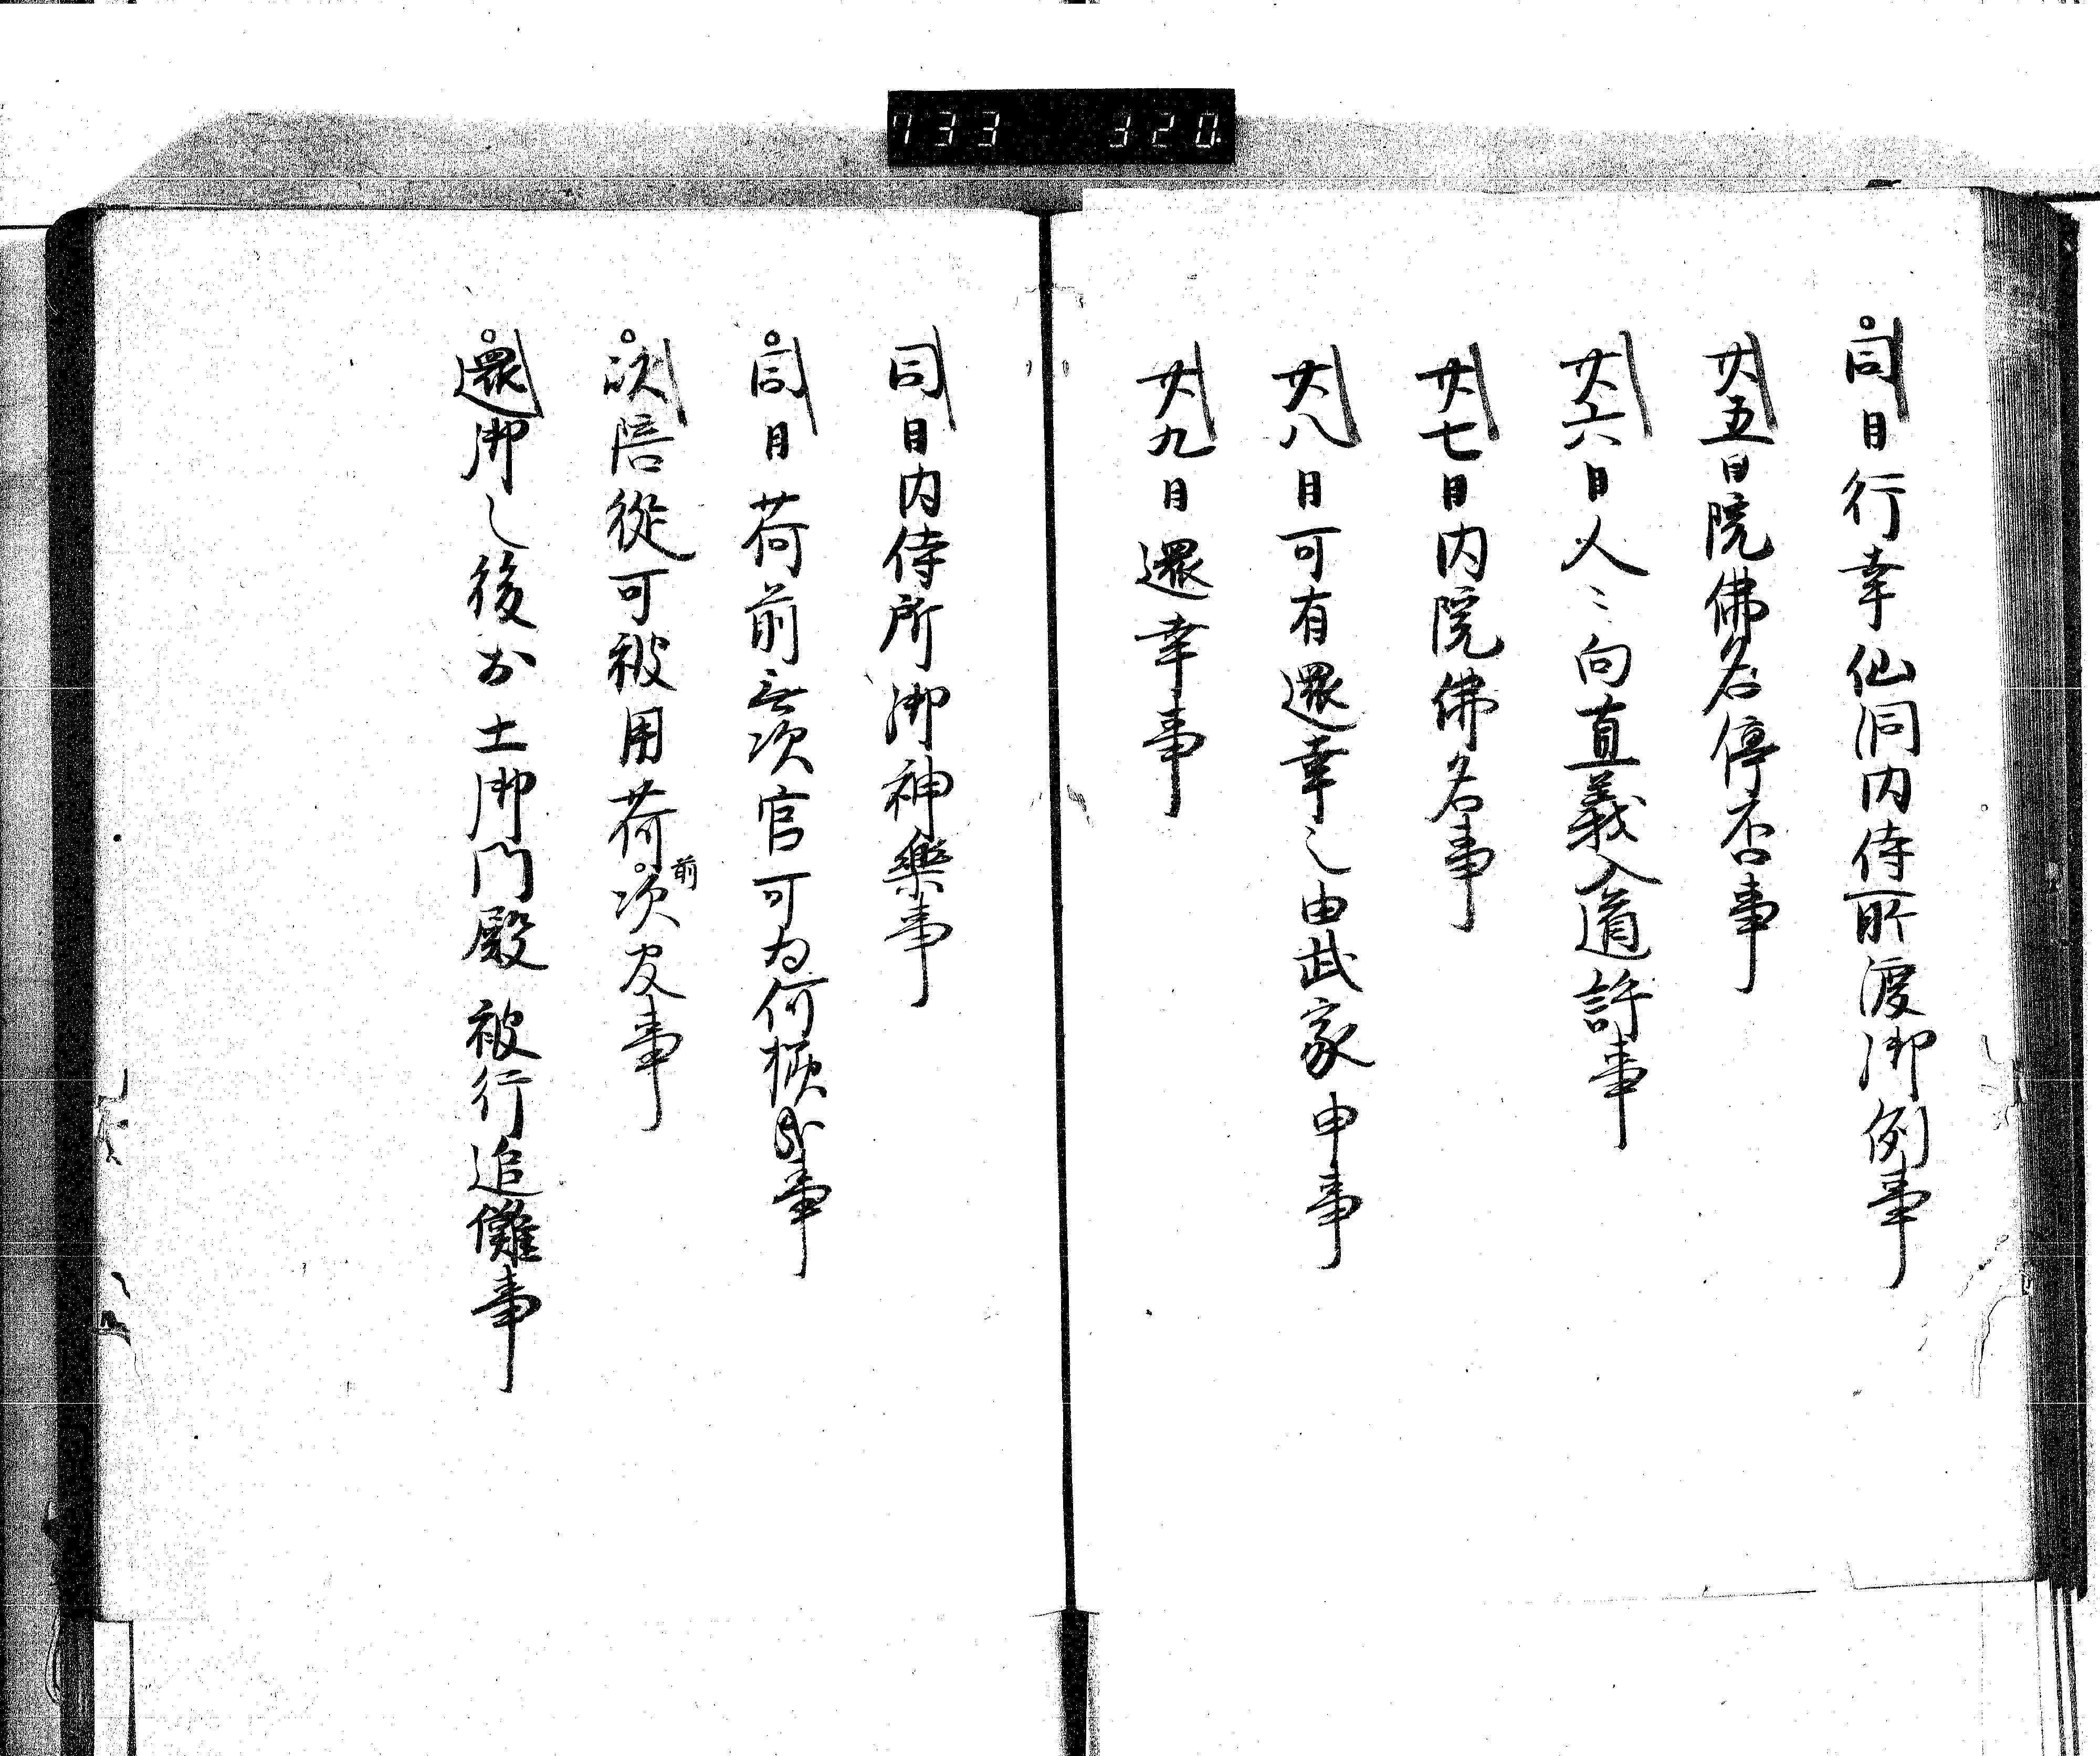 733 320
同日行幸仙洞内侍所渡御例事
廿五日院佛名停否事
廿六日人々向直義入道許事
廿七日内院佛名事
廿八日可有還幸之由武家申事
廿九日還幸事
同日内侍所御神樂事
同日荷前無次官可為何樣哉事
次陪從可被用荷前次官事
還御之後於土御門殿被行追儺事